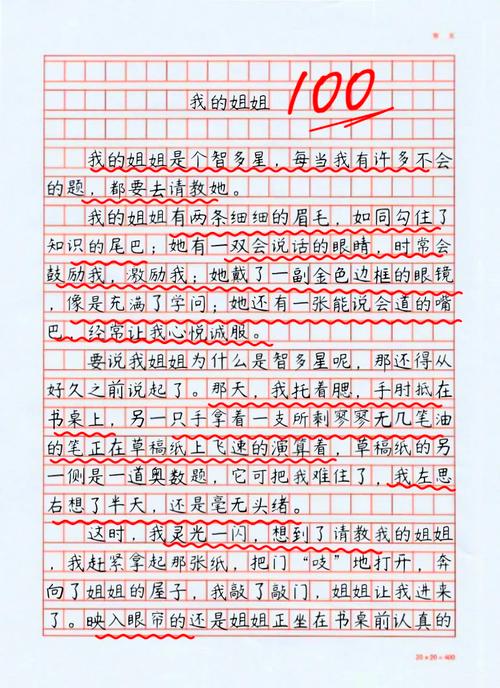 我的姐姐
100
我的姐姐是个智多星，每当我有许多不会
的题，都要去请教她。
我的姐姐有两条细细的眉毛，如同勾住了
知识的尾巴；她有一双会说话的眼睛，时常会
鼓励我，激励我；她戴了一副金色边框的眼镜
，像是充满了学问；她还有一张能说会道的嘴
巴，经常让我心悦诚服。
要说我姐姐为什么是智多星呢，那还得从
好久之前说起了。那天，我托着腮，手肘抵在
书桌上，另一只手拿着一支所剩寥寥无几笔油
的笔正在草稿纸上飞速的演算着，草稿纸的另
一侧是一道奥数题，它可把我难住了，我左思
右想了半天，还是毫无头绪。
这时，我灵光一闪，想到了请教我的姐姐
，我赶紧拿起那张纸，把门“吱”地打开，奔
向了姐姐的屋子，我敲了敲门，姐姐让我进来
了。映入眼帘的还是姐姐正坐在书桌前认真的
20×20=400